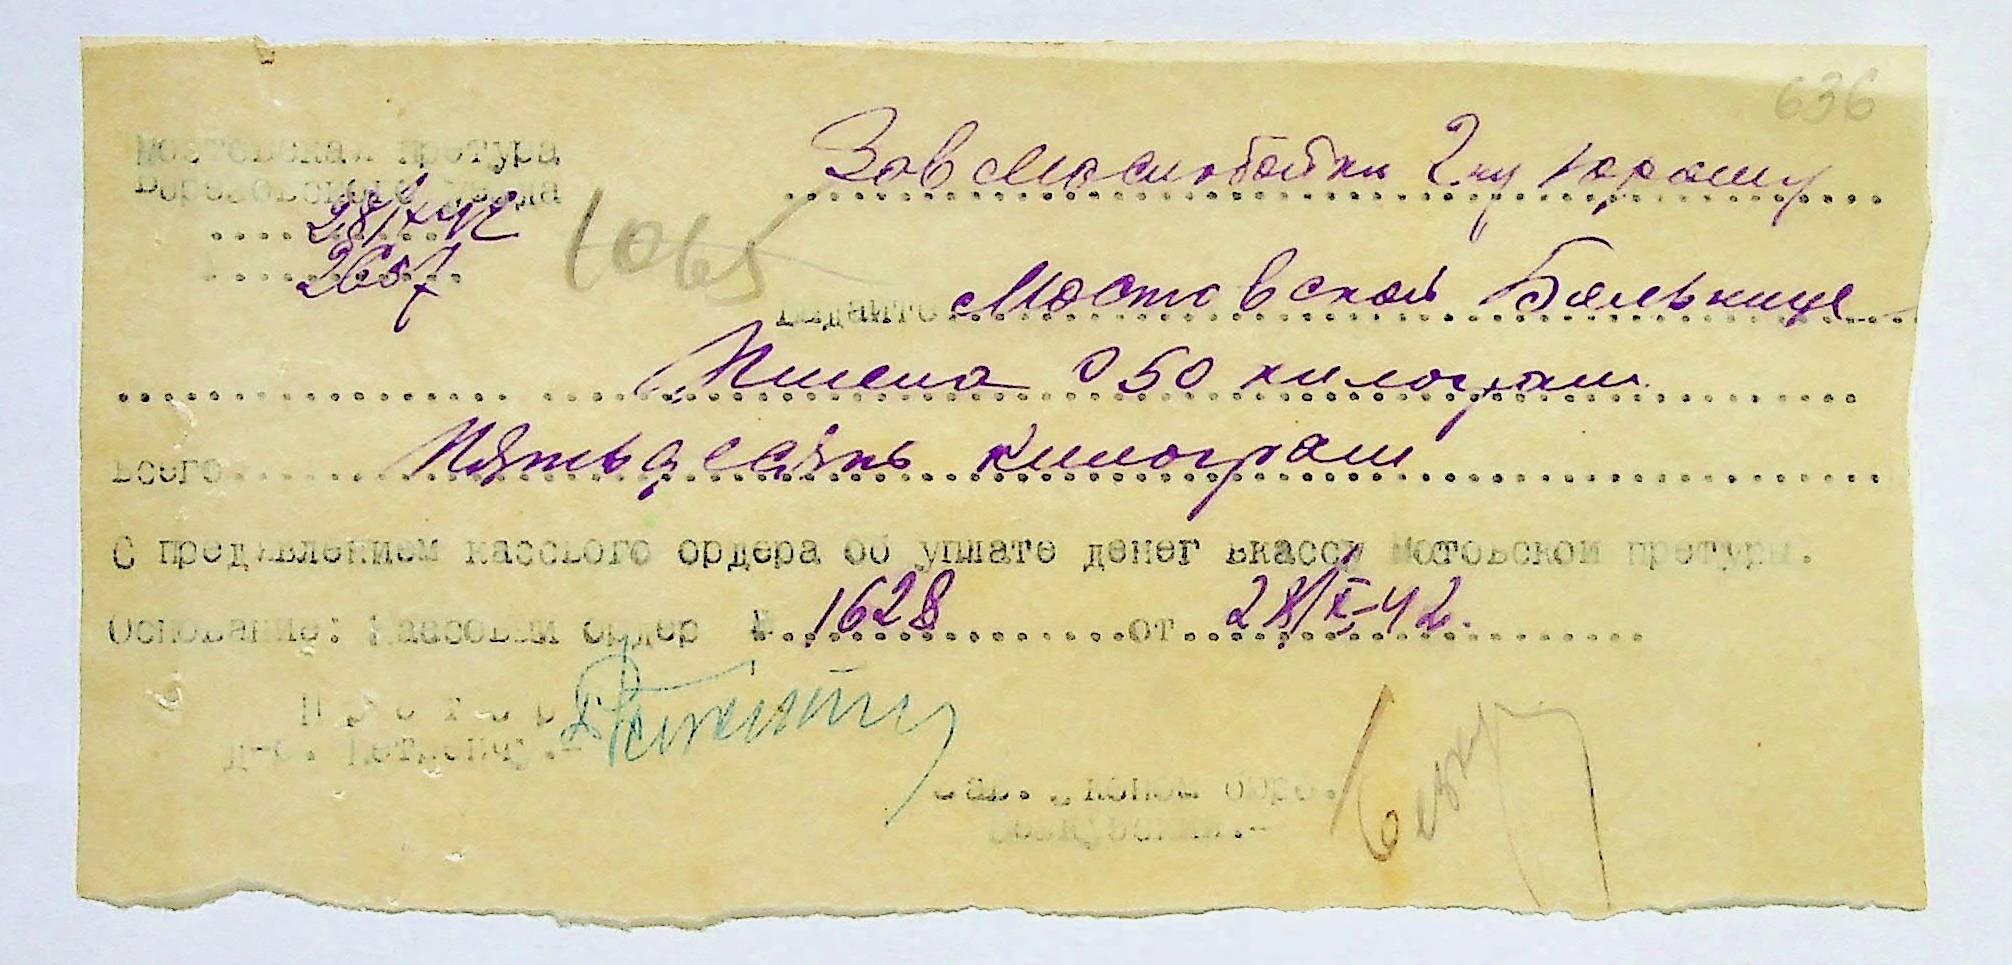 636
Мостовская претура
Березовского уезда
28/X 42
2657
1065
Зав Маслобойки Г.ну Юрашу
Выдайте Мостовской Больнице
Пшена 050 килограм
Всего Пятьдесять килограм
С предявлением кассвого ордера об уплате денег вкассу Мотовской претуры.
Основание: Кассовый ордер № 1628 от 28/X-42.
Претор